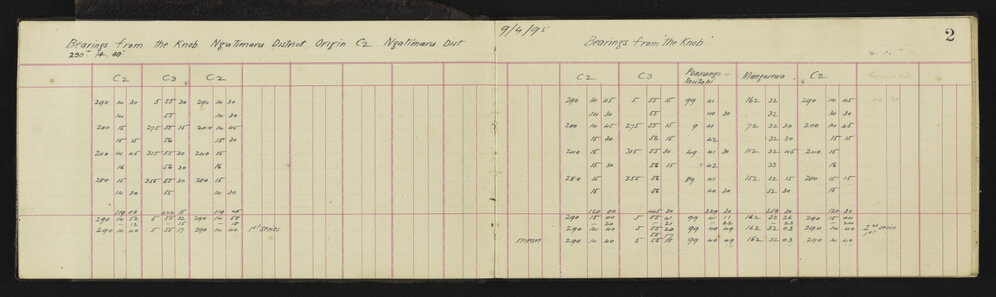 9/4/95
2
Bearings from the Knob Ngatimaru District Origin C2 Ngatimaru Dist
290° 14' 40"
Bearings from "the Knob"
C2 C3 C2
290 14 30 5 55 30 290 14 30
14 55
200 15 275 55 15 200 14 45
15 15 56 15 30
240 14 45 315 55 30 240 15
16 56 30 16
280 15 355 55 30 280 15
14 30 55 14 30
119 00 119 45
290 14 52 5 55 32 290 14 58
290 14 40 5 55 17 290 14 40 1st series
C2 C3 Mangaruwa C2
290 14 45 5 55 15 99 41 162 32 290 14 45
14 30 55 40 30 32 14 30
200 14 45 275 55 15 9 41 72 32 30 200 14 45
15 30 56 15 42 32 30 15 15
240 15 315 55 30 49 41 30 112 32 45 240 15
15 30 56 15 42 33 16
280 15 355 56 89 41 152 32 15 280 15 15
15 56 40 30 32 30 15
120 00 445 30 329 30 259 30 120 30
290 15 00 5 55 41 99 41 11 162 32 26 290 15 04
290 14 40 5 55 20 99 40 49 162 32 03 290 14 40 2nd series
55 17
mean 290 14 40 5 55 18 99 40 49 162 32 03 290 14 40